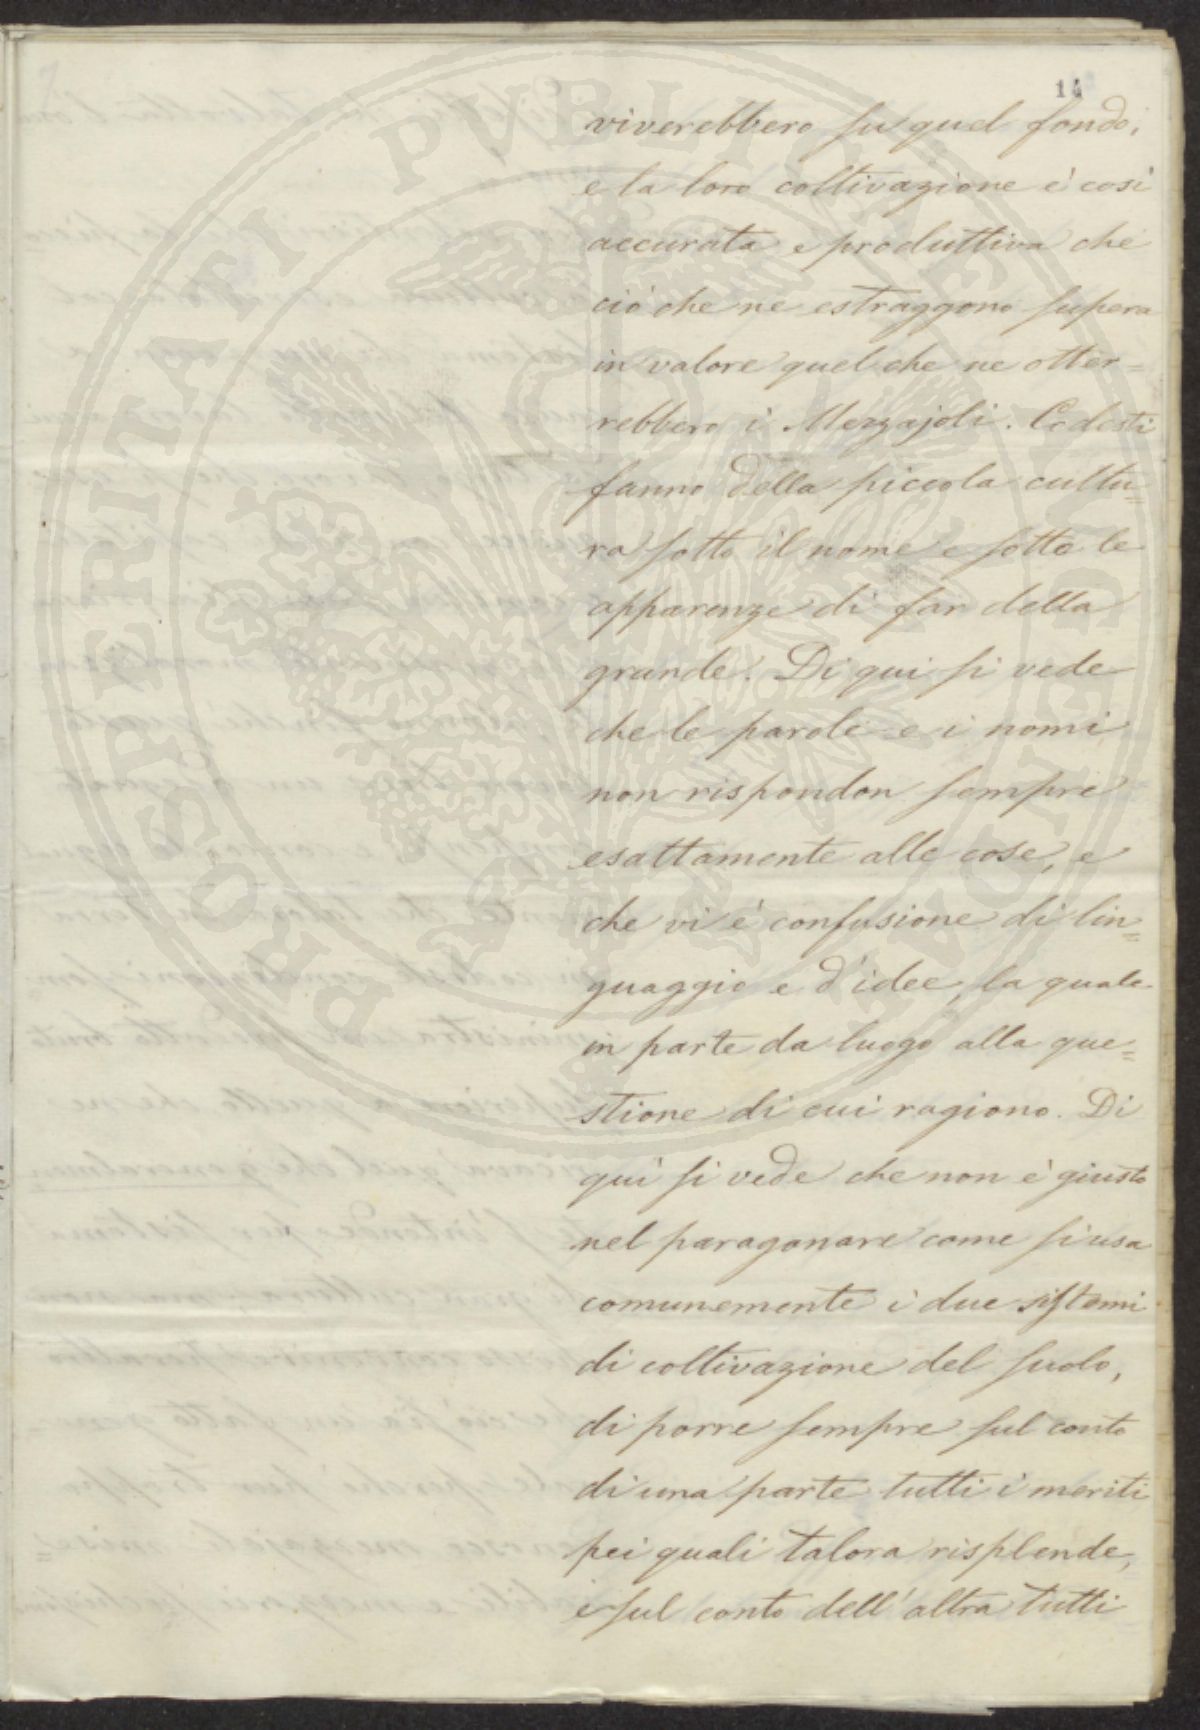 14
viverebbero su quel fondo,
e la loro coltivazione è così
accurata e produttiva che
ciò che ne estraggono supera
in valore quel che ne otter=
rebbero i Mezzajoli. Codesti
fanno della piccola cultu=
ra sotto il nome e sotto le
apparenze di far della
grande. Di qui si vede
che le parole e i nomi
non rispondon sempre
esattamente alle cose, e
che vi è confusione di lin=
guaggio e d'idee, la quale
in parte da luogo alla que=
stione di cui ragiono. Di
qui si vede che non è giusto
nel paragonare come si usa
comunemente i due sistemi
di coltivazione del suolo,
di porre sempre sul conto
di una parte tutti i meriti
pei quali talora risplende,
e sul conto dell'altra tutti
PROSPERITATI PVBLICAE AVGENDAE